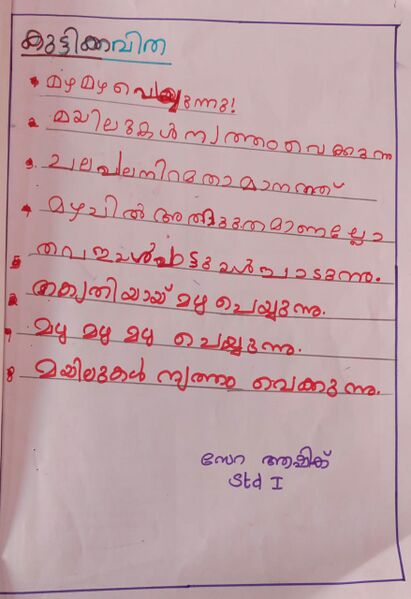 കുട്ടിക്കവിത
1 മഴ മഴ പെയ്യുന്നു!
2 മയിലുകൾ നൃത്തം വെക്കുന്നു
3 പല പല നിറമതാ മാനത്ത്
4 മഴവിൽ അത്ഭുതമാണല്ലോ
5 തവളകൾ പാട്ടുകൾ പാടുന്നു.
6 മഴ പെയ്യുന്നു.
7 മഴ മഴ മഴ പെയ്യുന്നു.
8 മയിലുകൾ നൃത്തം വെക്കുന്നു.
സേറ ആഷിക്
Std I